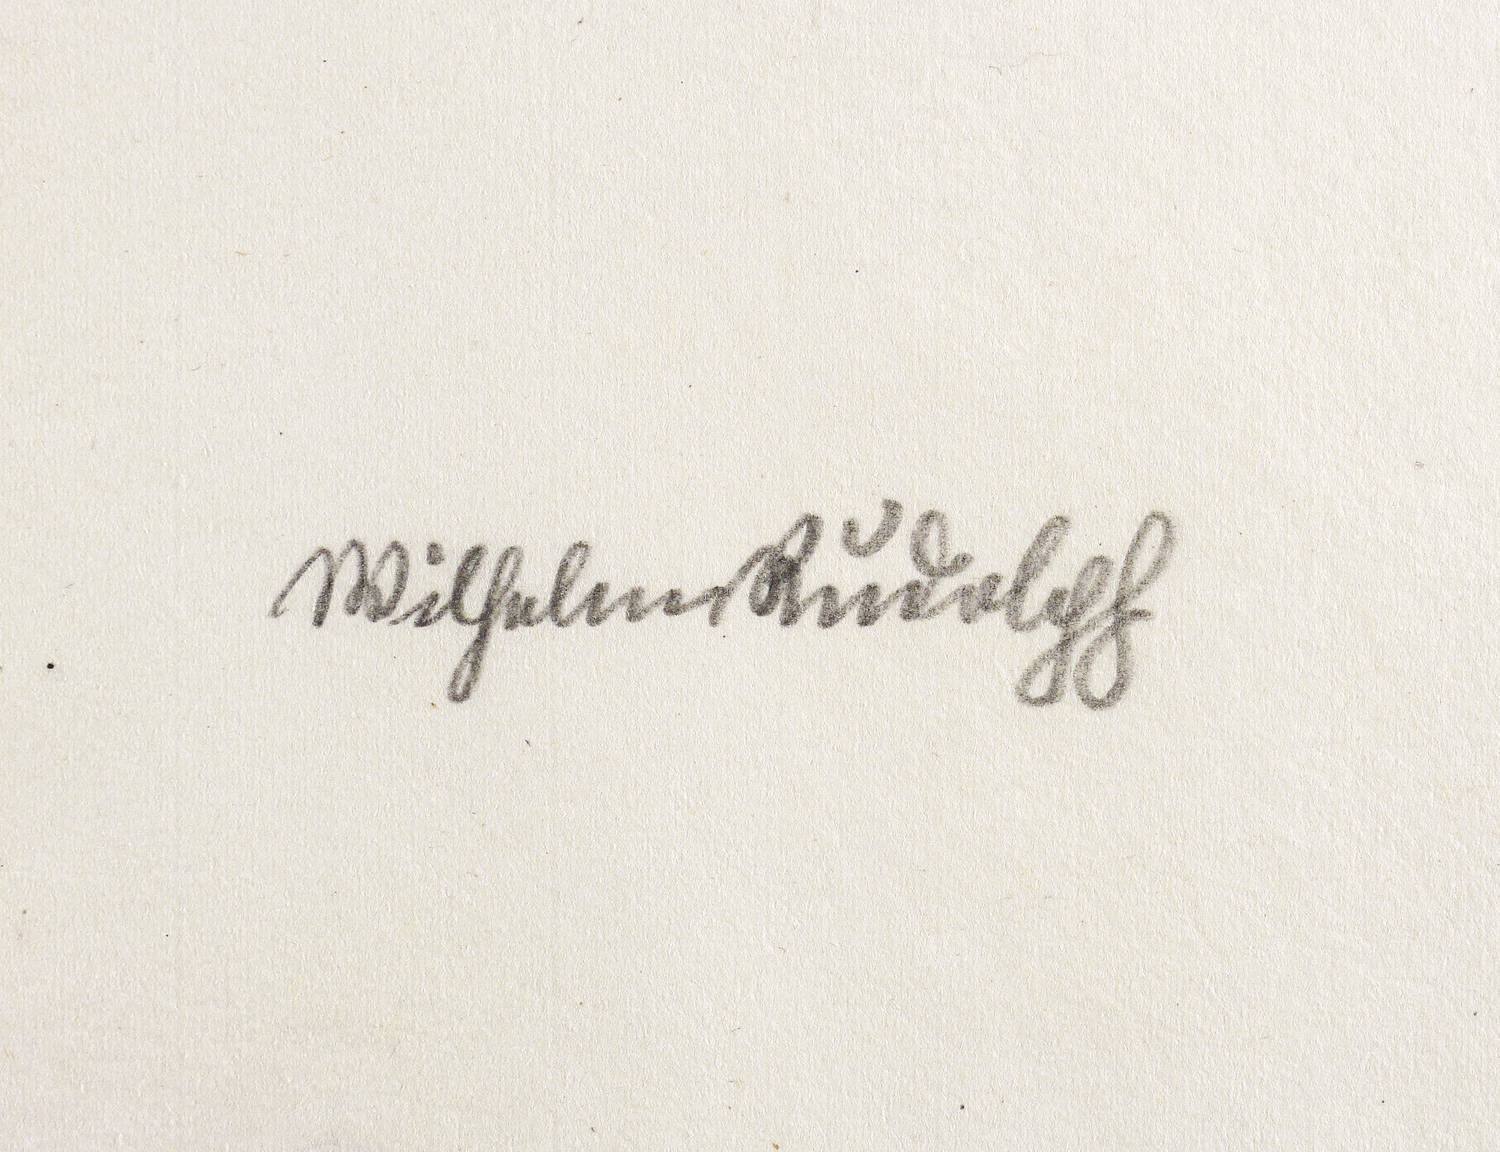 Wilhelm Rudolph